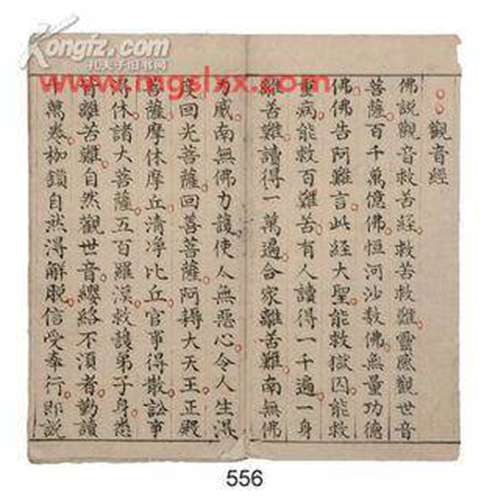 Kongfz.com
孔夫子旧书网
www.mgslxx.com
觀音經
佛説觀音救苦經救苦救難靈感觀世音
菩薩百千萬億佛恒河沙数佛無量功德
佛佛告阿難言此經大聖能救獄囚能救
重病能救百難苦有人讀得一千遍一身
離苦難讀得一萬遍合家離苦難南無佛
力威南無佛力護使人無惡心令人生得
度回光菩薩回善菩薩阿耨大天王正殿
菩薩摩休摩丘清凈比丘官事得散訟事
得休諸大菩薩五百羅漢救護弟子身悉
皆離苦難自然觀世音纓絡不須者勤讀
千萬卷枷鎖自然得解脱信受奉行即説
556